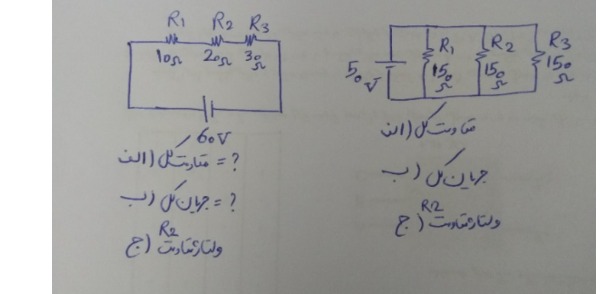 R1 R2 R3
10Ω 20Ω 30Ω
60V
الف) مقاومت کل = ?
ب) جریان کل = ?
ج) ولتاژ مقاومت R2
50V
R1 R2 R3
150Ω 150Ω 150Ω
الف) مقاومت کل
ب) جریان کل
ج) ولتاژ مقاومت R2